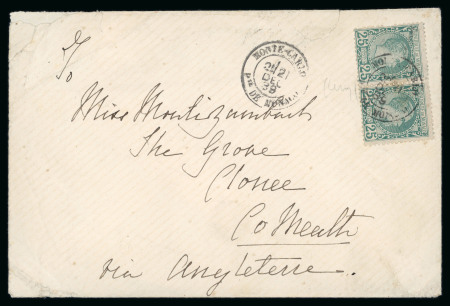 25 25
MONTE-CARLO
21
DEC
Pté DE MONACO
To
Miss Montizambert
The Grove
Clonee
Co Meath
via Angleterre.